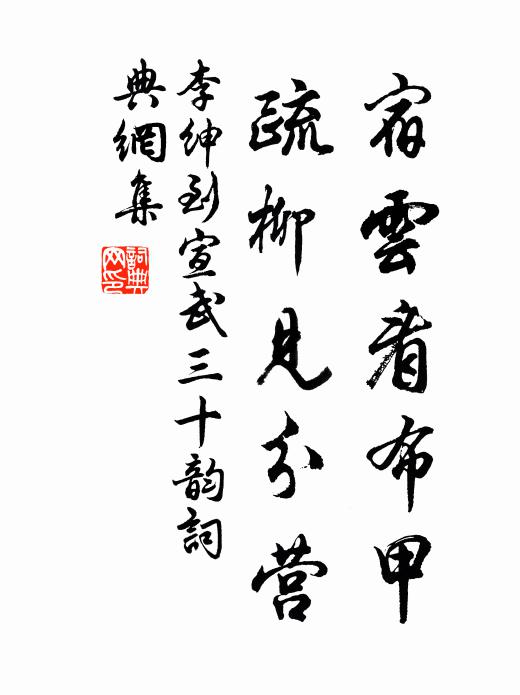 宿雲看布甲
疏柳見分营
李紳到宣武三十韵詞
典網集
詞典网印